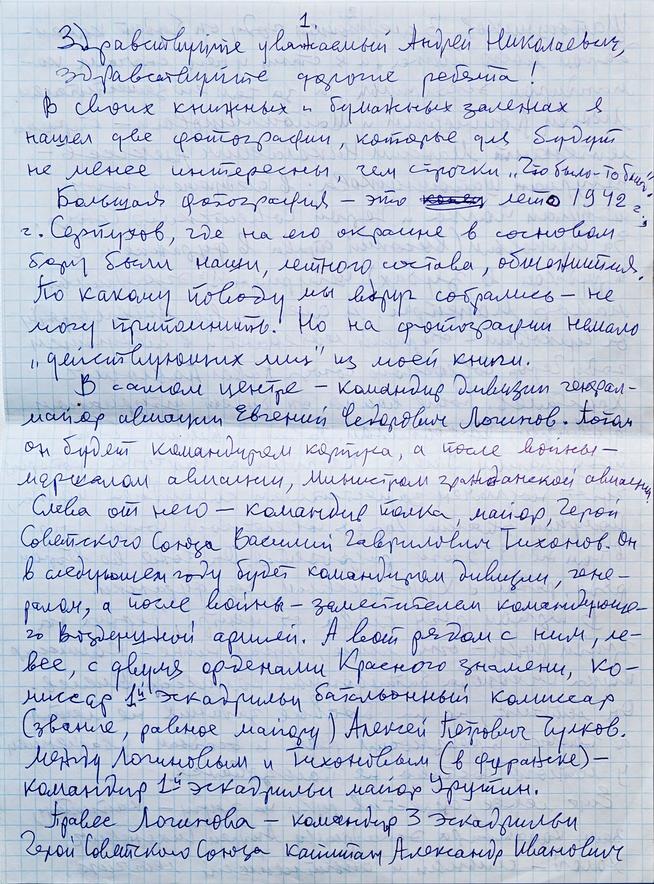 1.
Здравствуйте уважаемый Андрей Николаевич,
здравствуйте дорогие ребята!
В своих книжных и бумажных залежах я
нашел две фотографии, которые для будут
не менее интересны, чем строчки „Что было-то было".
Большая фотография – это конец лето 1942 г.,
г. Серпухов, где на его окраине в сосновом
бору были наши, летного состава, общежития.
По какому поводу мы вдруг собрались – не
могу припомнить. Но на фотографии немало
„действующих лиц" из моей книги.
В самом центре – командир дивизии генерал-
майор авиации Евгений Федорович Логинов. Потом
он будет командиром корпуса, а после войны –
маршалом авиации, министром гражданской авиации.
Слева от него – командир полка, майор, Герой
Советского Союза Василий Гаврилович Тихонов. Он
в следующем году будет командиром дивизии, гене-
ралом, а после войны – заместителем командующе-
го Воздушной армией. А вот рядом с ним, ле-
вее, с двумя орденами Красного знамени, ко-
миссар 1й эскадрильи батальонный комиссар
(звание, равное майору) Алексей Петрович Чулков.
Между Логиновым и Тихоновым (в фуражке) –
командир 1й эскадрильи майор Урутин.
Правее Логинова – командир 3 эскадрильи
Герой Советского Союза капитан Александр Иванович